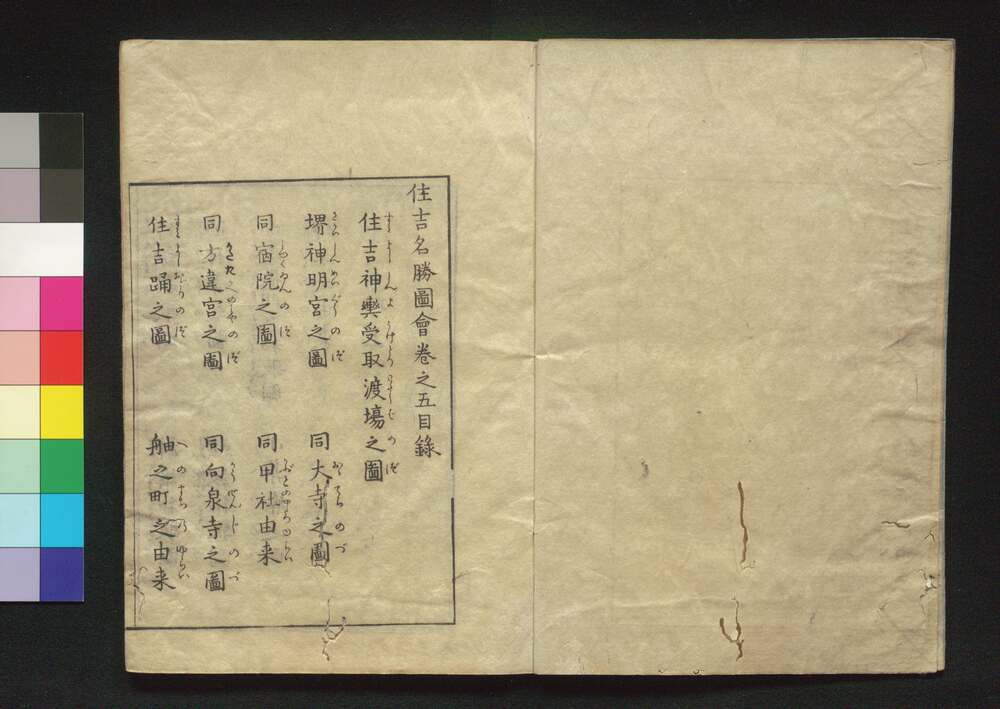 住吉名勝圖會巻之五目錄
住吉神輿受取渡場之圖
堺神明宮之圖
同大寺之圖
同宿院之圖
同甲社由来
同方違宮之圖
同向泉寺之圖
住吉踊之圖
舳之町之由来